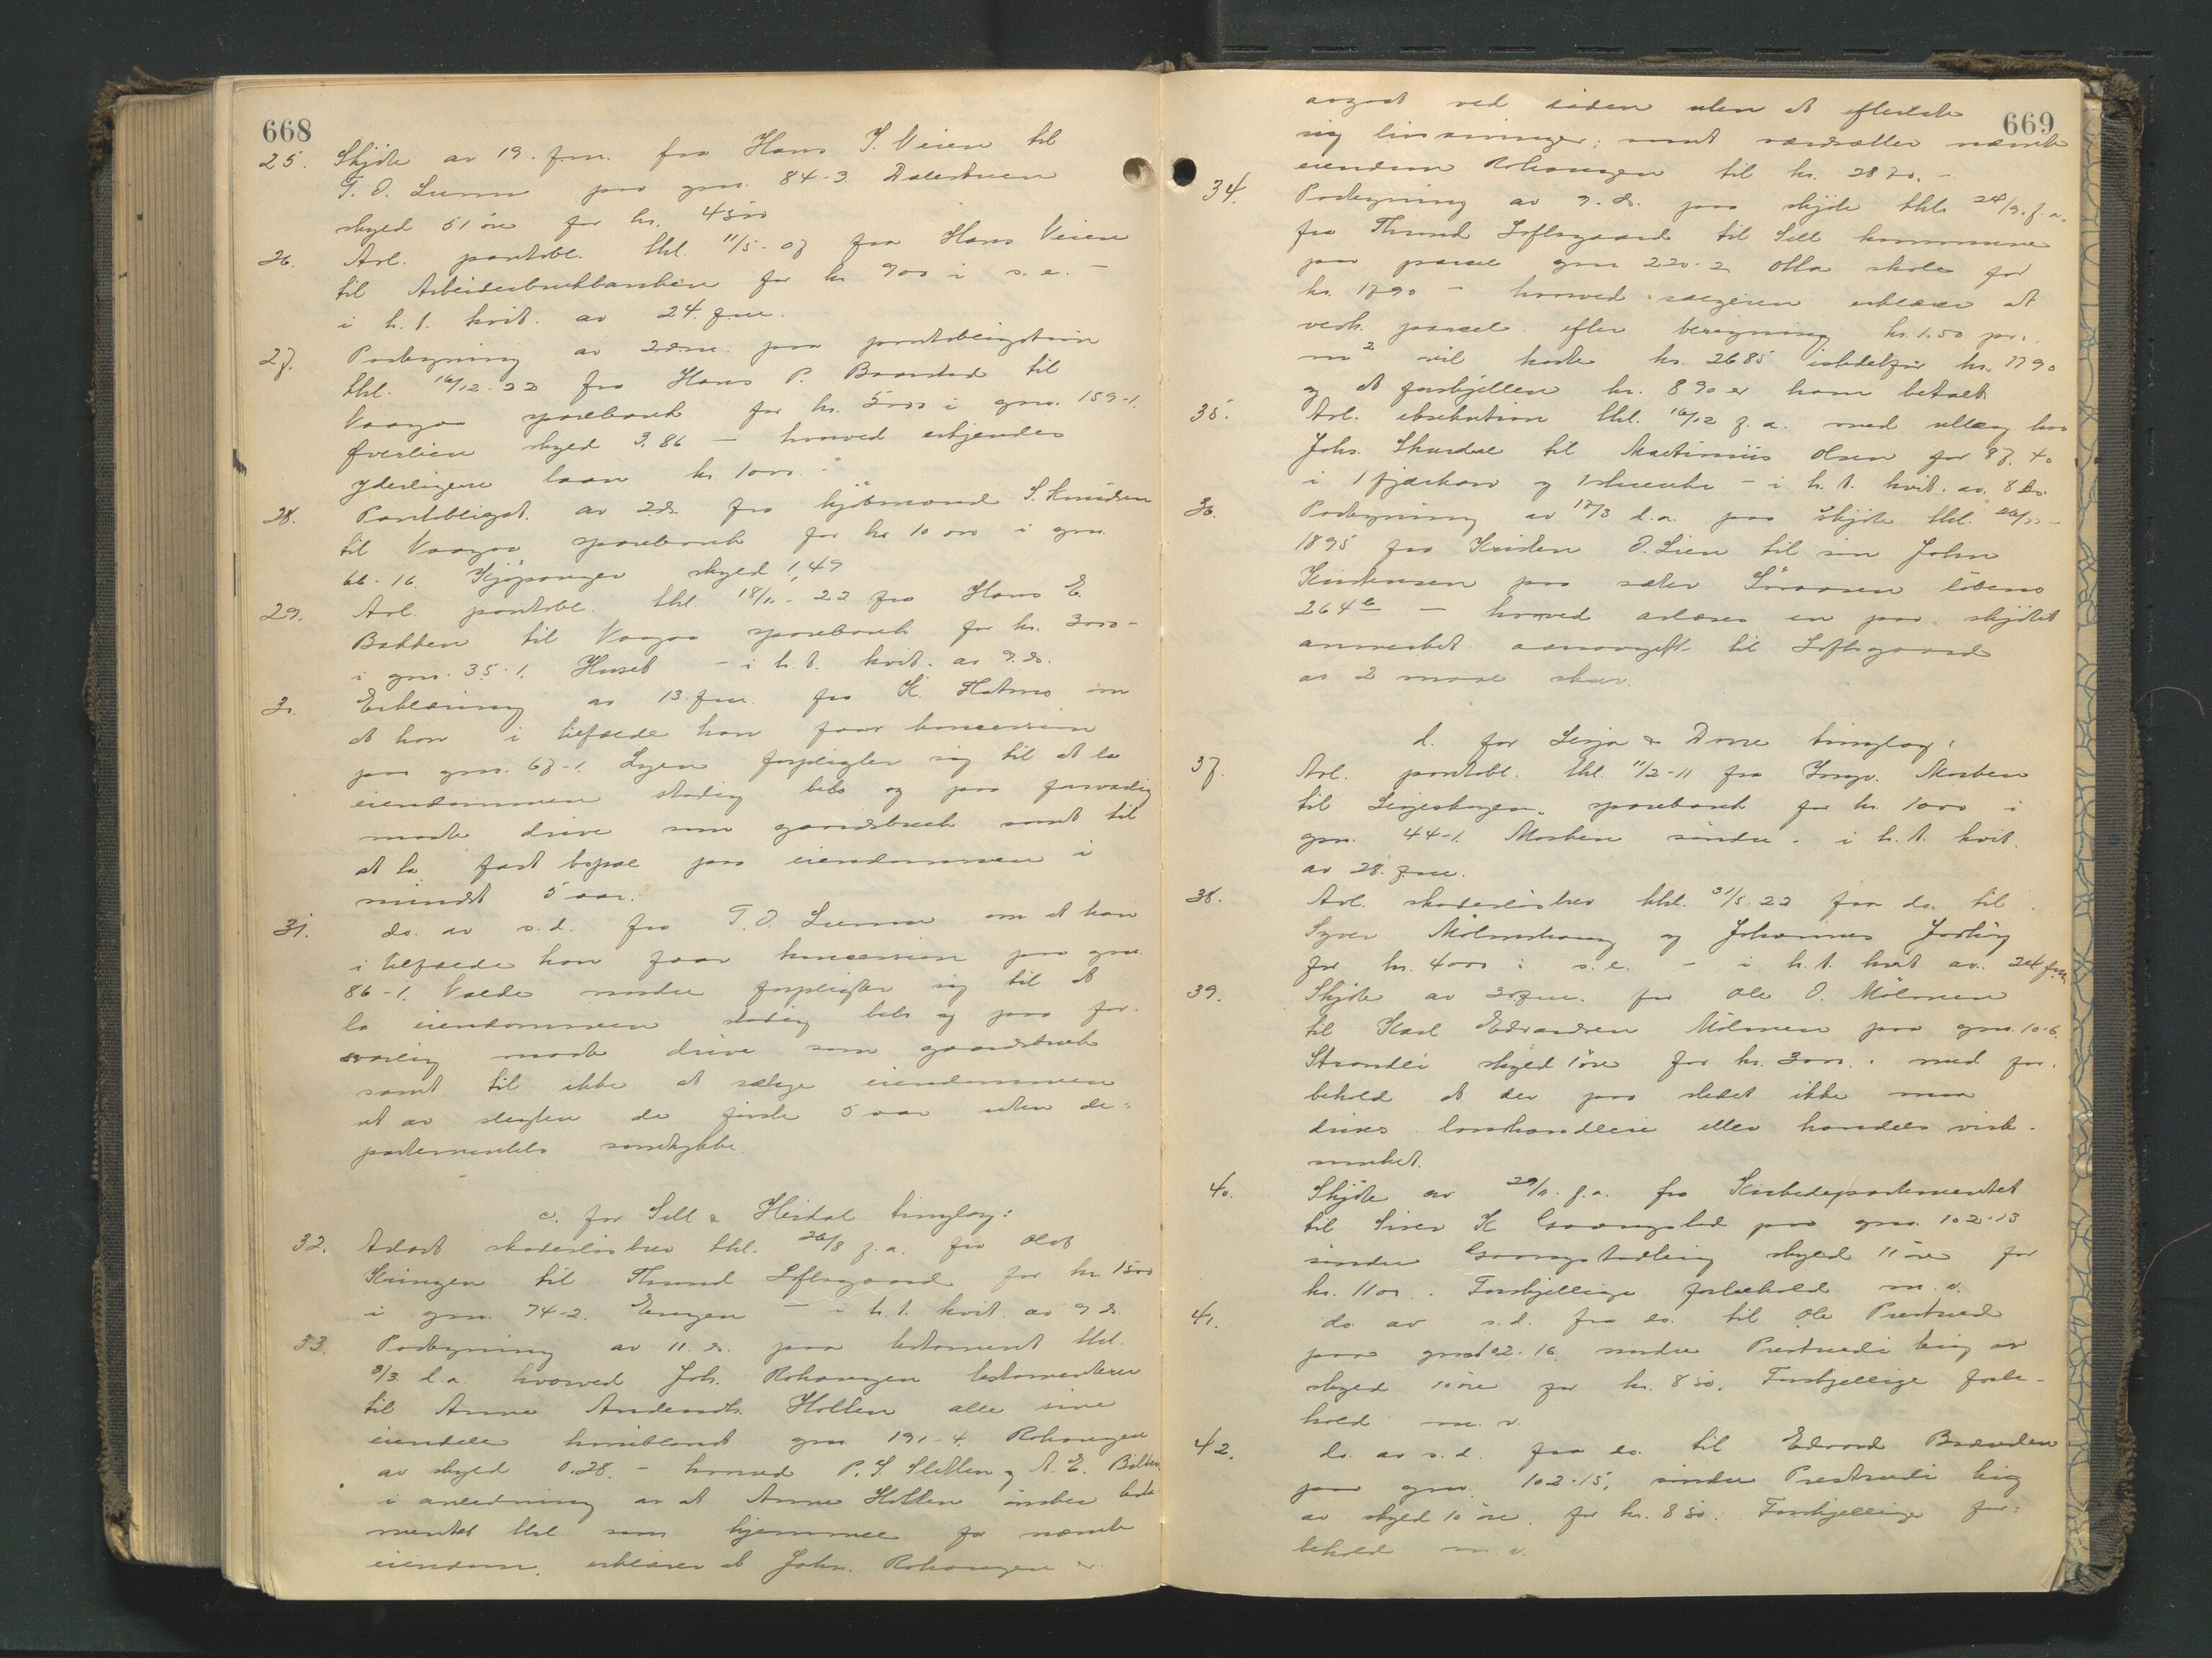 668
25. Skjöte av 19. f.m. fra Hans T. Veien til
T. O. Lunn paa gnr. 84-3. Dalestuen
skyld 51 öre for kr. 4500
26. Avl. pantobl. thl. 11/5-07 fra Hans Veien
til Arbeiderbrukbanken for kr 900 i s. e. -
i h. t. kvit. av 24. f.m.
27. Paategning av 2. d.m. paa pantobligation
thl. 16/12-22 fra Hans P. Baarstad til
Vaagaa sparebank for kr. 5000 i gnr. 159-1.
Øverlien skyld 3.86 - hvorved erkjendes
yderligere laan kr. 1000.-
28. Pantobligat. av 2. ds. fra kjöbmand S. Knudsen
til Vaagaa sparebank for kr 10 000 i gnr.
66-16. Kjöpanger skyld 1,49
29. Avl. pantobl. thl. 18/11-22 fra Hans E.
Bakken til Vaagaa sparebank for kr. 3000-
i gnr. 35-1. Huset - i h. t. kvit. av 9. ds.
30. Erklæring av 13. f.m. fra K. Hatmo om
at han i tilfælde han faar koncession
paa gnr. 67-1. Lyen forpligter sig til at la
eiendommen stadig bebo og paa forsvarlig
maate drive som gaardsbruk samt til
at ta fast bopæl paa eiendommen i
mindst 5 aar.
31. do. av s. d. fra T. O. Lunn om at han
i tilfælde han faar koncession paa gnr.
86-1. Valde nordre forpligter sig til at
la eiendommen stadig bebo og paa for-
svarlig maate drive som gaardsbruk
samt til ikke at sælge eiendommen
ut av slegten de förste 5 aar uten de-
partementets samtykke.
c. for Sell & Heidal tinglag:
32. Avlæst skadeslösbrev thl. 26/8 f. a. fra Olot
Kringen til Thrond Loftsgaard for kr. 1500
i gnr. 74-2. Engen - i h. t. kvit av 9 ds.
33. Paategning av 11. ds. paa testament thl.
9/3 d.a. hvorved Joh. Rohaugen testamenterer
til Anne Andersdtr. Holten alle sine
eiendele hvoriblandt gnr 191-4. Rohaugen
av skyld 0.28 - hvorved P. S. Sletten og A. E. Bakken
i anledning av at Anne Holten önsker testa
mentet thl. som hjemmel for nævnte
eiendom, erklærer at Johs. Rohaugen er
669
avgaat ved döden uten at efterlate
sig livsarvinger; samt værdsætter nævnte
eiendom Rohaugen til kr. 2870.-
34. Paategning av 9. ds. paa skjöte thl. 24/9. f. a.
fra Thrond Loftsgaard til Sell kommune
paa parsel gnr 220-2 Otta skole for
kr. 1790 - hvorved sælgeren erklærer at
vedk. parsel efter beregning kr. 1.50 pr.
m² vil koste kr. 2685 istedetfor kr. 1790
og at forskjellen kr. 890 er ham betalt
35. Avl. eksekution thl. 16/12 f. a. med utlæg hos
Johs. Skurdal til Martinius Olsen for 87.40
i 1 fjærkarv og 1 - i h. t. kvit. av. 8 ds.
36. Paategning av 17/3 d.a. paa skjöte thl. 26/11-
1895 fra Kristen O. Lien til sin John
Kristensen paa sæter Søraasen löbeno
264 b - hvorved avlæses en paa skjötet
anmerket aarsavgift til Loftsgaard
av 2 maal skav.
d. for Lesja & Dovre tinglag:
37. Avl. pantobl. thl. 11/2-11 fra Ingv. Morken
til Lesjeskogens sparebank for kr. 1000 i
gnr. 44-1. Morken søndre - i h. t. kvit.
av 28. f.m.
38. Avl. skadeslösbrev thl. 31/5-22 fra do. til
Syver Mölmshaug og Johannes Jorting
for kr. 4000 i s. e. - i h. t. kvit av. 24 f.m.
39. Skjöte av 30 f.m. fra Ole O. Mölmen
til Karl Edvardsen Mölmen paa gnr. 10-6.
Strandli skyld 1 öre for kr. 3000.. med for-
behold at der paa stedet ikke maa
drives landhandleri eller handels virk-
somhet.
40. Skjöte av 29/11. f.a. fra Kirkedepartementet
til Siver K Gaangstad paa gnr. 102-13
søndre Gaangstadleiy skyld 11 öre for
kr. 1100.. Forskjellige forbehold m. v.
41. do. av s. d. fra do. til Ole Prestrud
paa gnr 102-16. nordre Prestrudi leiy av
skyld 10 öre for kr. 850. Forskjellige forbe-
hold m. v.
42. do. av s. d. fra do. til Edvard Brænden
paa gnr. 102-15, søndre Prestrudi leiy
av skyld 10 öre. for kr. 850. Forskjellige for-
behold m. v.